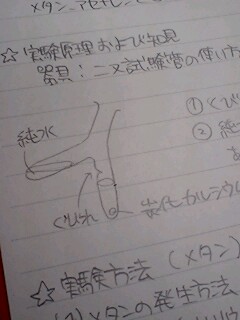 メタン、アセチレン
☆ 実験原理および知見
器具：二又試験管の使い方
純水
① くび
② 純
くびれ
炭化カルシウム
☆ 実験方法 (メタン)
メタンの発生方法